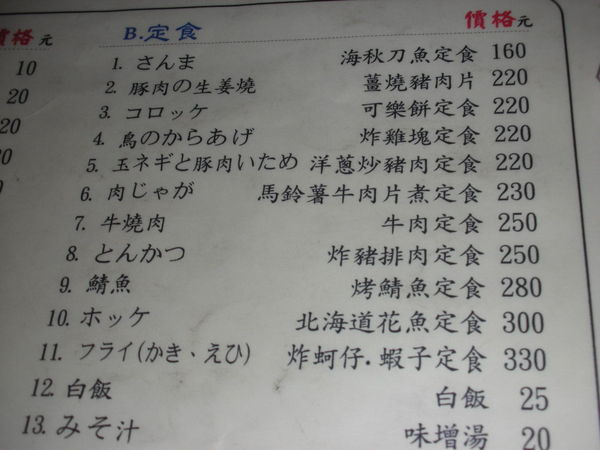 價格元
B.定食 價格元
10
20
20
1. さんま 海秋刀魚定食 160
2. 豚肉の生姜燒 薑燒豬肉片 220
3. コロッケ 可樂餅定食 220
4. 鳥のからあげ 炸雞塊定食 220
5. 玉ネギと豚肉いため 洋蔥炒豬肉定食 220
6. 肉じゃが 馬鈴薯牛肉片煮定食 230
7. 牛燒肉 牛肉定食 250
8. とんかつ 炸豬排肉定食 250
9. 鯖魚 烤鯖魚定食 280
10. ホッケ 北海道花魚定食 300
11. フライ(かき、えひ) 炸蚵仔.蝦子定食 330
12. 白飯 白飯 25
13. みそ汁 味增湯 20